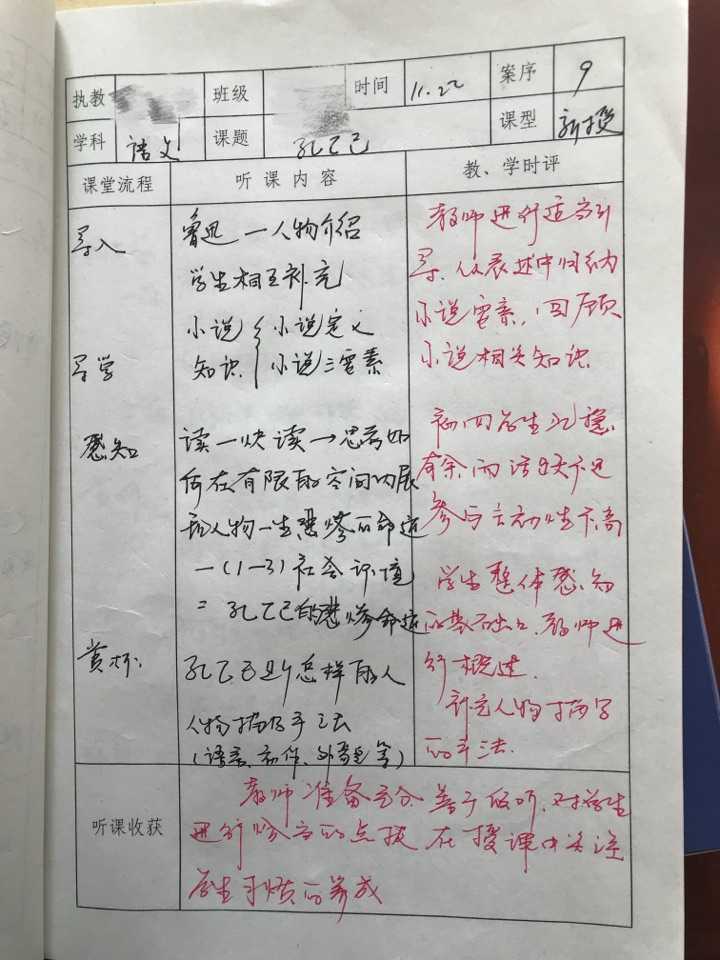 执教 班级 时间 11.22 案序 9
学科 语文 课题 孔乙己 课型 新授
课堂流程 听课内容 教、学时评
导入
鲁迅一人物介绍
学生相互补充
小说 { 小说定义
知识 小说三要素
导学
感知
读一快读→思考如
何在有限的空间内展
示人物一生悲惨的命运
一(1-3)社会环境
二 孔乙己的悲惨命运
赏析:
孔乙己是个怎样的人
人物描写手法
(语言、动作、外貌等)
教师进行适当引
导,从表述中归纳
小说要素,回顾
小说相关知识
初四学生沉稳
有余,而活跃不足
参与主动性不高
学生整体感知
教师进
行概述.
补充人物描写
的手法.
听课收获
教师准备充分,善于倾听,对学生
进行恰当的点拨,在授课中关注
学生习惯的养成